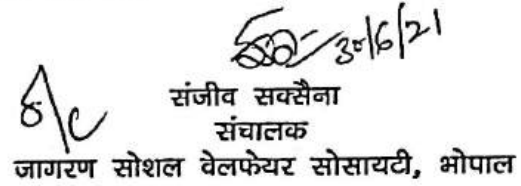 30/6/21
संजीव सक्सैना
संचालक
जागरण सोशल वेलफेयर सोसायटी, भोपाल